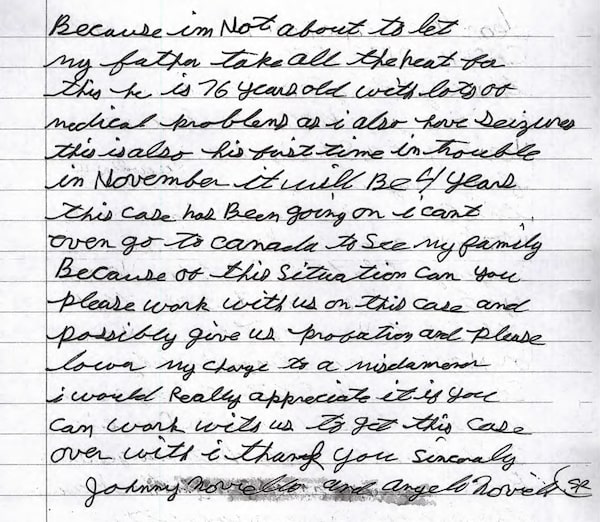 Because im Not about to let
my father take all the heat for
this he is 76 years old with lots of
medical problems as i also have seizures
this is also his first time in trouble
in November it will Be 4 years
this case has Been going on i cant
even go to canada to See my family
Because of this Situation Can you
please work with us on this case and
possibly give us probation and please
lower my charge to a misdamenor
i would Really appreciate it if you
can work with us to get this case
over with i thank you Sincerely
Johnny Noviello and Angelo Noviello SR